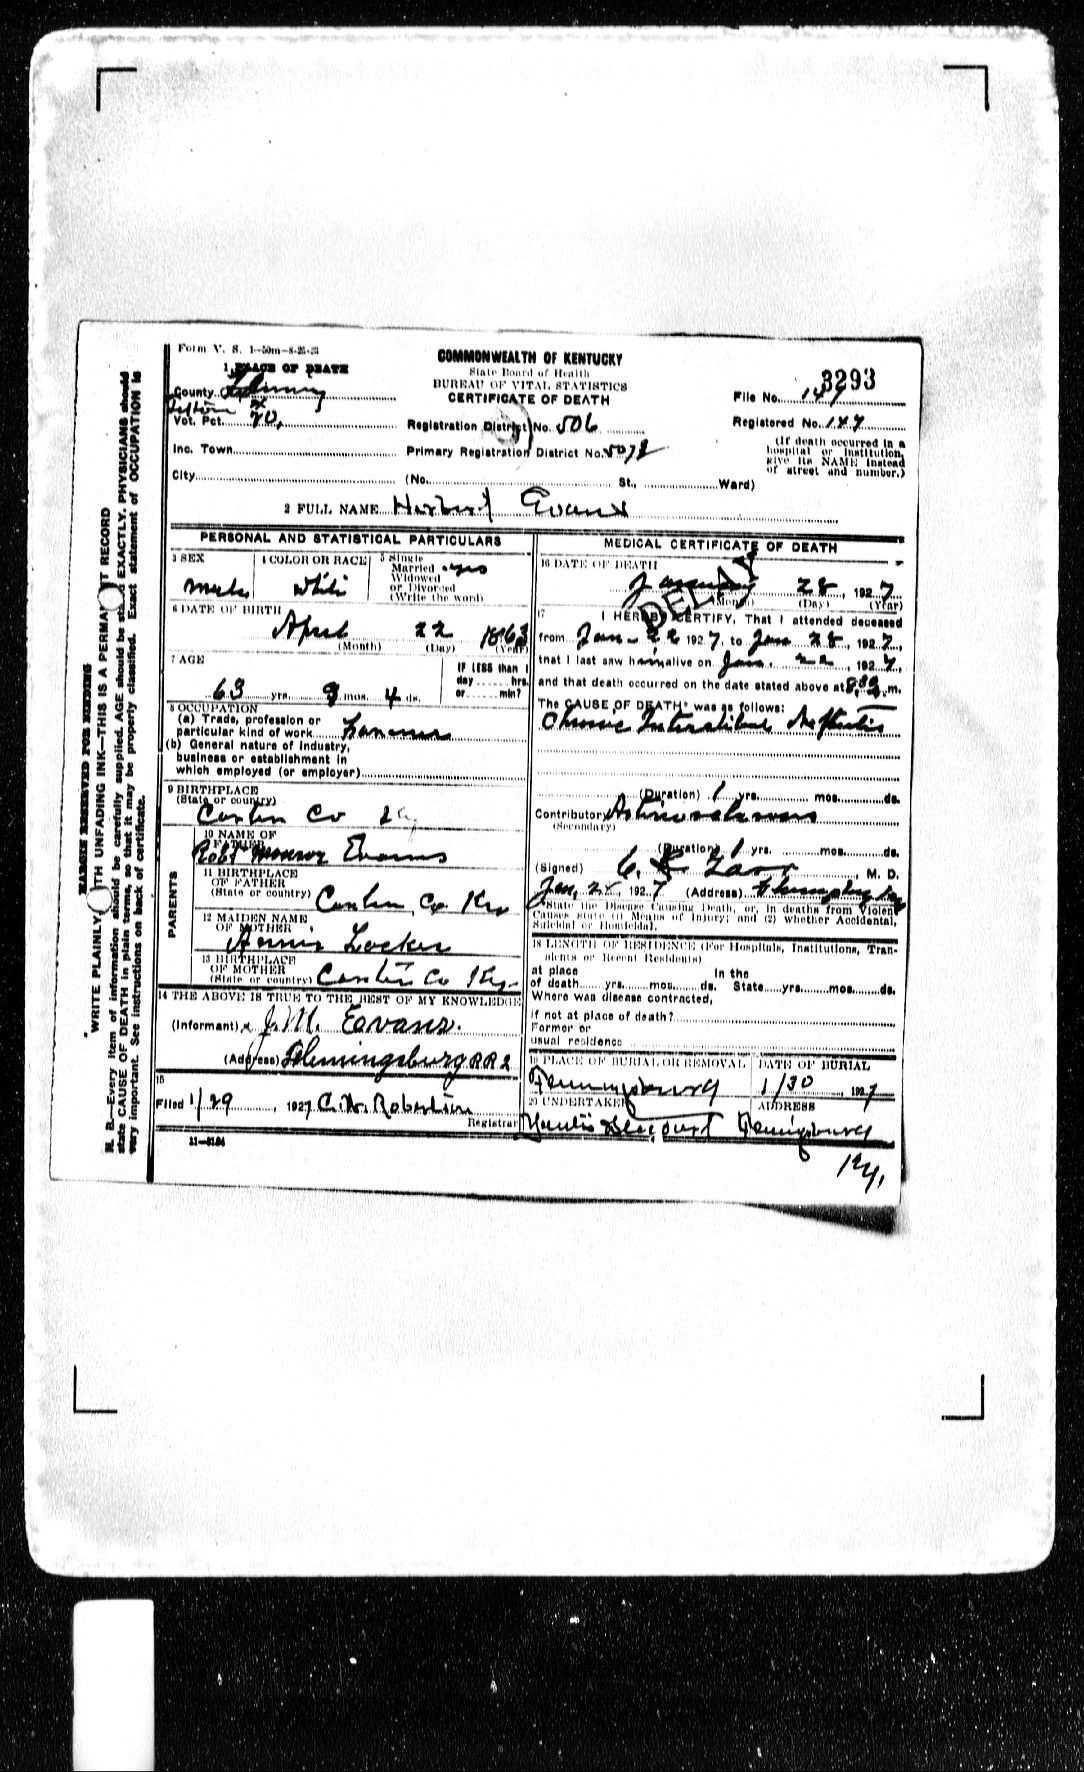 Form V. S. 1-50m-8-25-23
1 PLACE OF DEATH
County Fleming
Vot. Pct. 20,
Inc. Town
City
COMMONWEALTH OF KENTUCKY
State Board of Health
BUREAU OF VITAL STATISTICS
CERTIFICATE OF DEATH
Registration District No. 506
Primary Registration District No. 5072
(No. St., Ward)
3293
File No. 147
Registered No. 147
(If death occurred in a
hospital or institution,
give its NAME instead
of street and number.)
2 FULL NAME Herbert Evans
PERSONAL AND STATISTICAL PARTICULARS
3 SEX
male
4 COLOR OR RACE
white
5 Single
Married yes
Widowed
or Divorced
(Write the word)
6 DATE OF BIRTH
April 22 1863
(Month) (Day) (Year)
7 AGE
63 yrs. 9 mos. 4 ds.
IF LESS than 1
day hrs.
or min?
8 OCCUPATION
(a) Trade, profession or
particular kind of work Farmer
(b) General nature of industry,
business or establishment in
which employed (or employer)
9 BIRTHPLACE
(State or country)
Carter Co Ky
PARENTS
10 NAME OF
FATHER
Robt Monroe Evans
11 BIRTHPLACE
OF FATHER
(State or country) Carter Co Ky
12 MAIDEN NAME
OF MOTHER
Annie Locker
13 BIRTHPLACE
OF MOTHER
(State or country) Carter Co Ky.
14 THE ABOVE IS TRUE TO THE BEST OF MY KNOWLEDGE
(Informant) x J. M. Evans.
(Address) Flemingsburg RR 2
15
Filed 1/29, 1927 C. W. Robertson
Registrar
11-3184
MEDICAL CERTIFICATE OF DEATH
16 DATE OF DEATH
January 28, 1927
(Month) (Day) (Year)
DELAY
17 I HEREBY CERTIFY, That I attended deceased
from Jan - 22 1927, to Jan 28, 1927,
that I last saw him alive on Jan. 22, 1927,
and that death occurred on the date stated above at 8:30 m.
The CAUSE OF DEATH* was as follows:
Chronic Interstitial Nephritis
(Duration) 1 yrs. mos. ds.
Contributory Arteriosclerosis
(Secondary)
(Duration) 1 yrs. mos. ds.
(Signed) C. R. , M. D.
Jan, 28, 1927 (Address) Flemingsburg
*State the Disease Causing Death, or, in deaths from Violent
Causes state (1) Means of Injury; and (2) whether Accidental,
Suicidal or Homicidal.
18 LENGTH OF RESIDENCE (For Hospitals, Institutions, Tran-
sients or Recent Residents)
at place In the
of death yrs. mos. ds. State yrs. mos. ds.
Where was disease contracted,
if not at place of death?
Former or
usual residence
19 PLACE OF BURIAL OR REMOVAL
Flemingsburg
DATE OF BURIAL
1/30, 1927
20 UNDERTAKER
ADDRESS
Flemingsburg
Ky.
MARGIN RESERVED FOR BINDING
WRITE PLAINLY WITH UNFADING INK—THIS IS A PERMANENT RECORD
N. B.—Every item of information should be carefully supplied. AGE should be stated EXACTLY. PHYSICIANS should
state CAUSE OF DEATH in plain terms, so that it may be properly classified. Exact statement of OCCUPATION is
very important. See instructions on back of certificate.